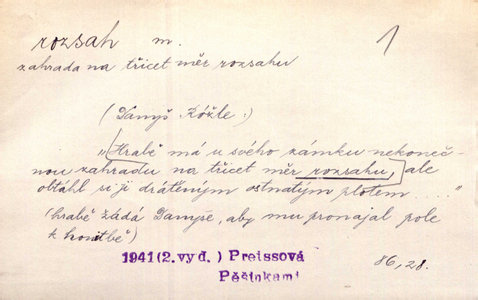 rozsah m. 1
zahrada na třicet měr rozsahu
(Damyš Kóžle:)
„Hrabě má u svého zámku nekoneč-
nou zahradu na třicet měr rozsahu, ale
obtáhl si ji drátěným ostnatým plotem ..."
(hrabě žádá Damyše, aby mu pronajal pole
k honitbě)
1941(2.vyd.) Preissová
Pěšinkami
86,28.